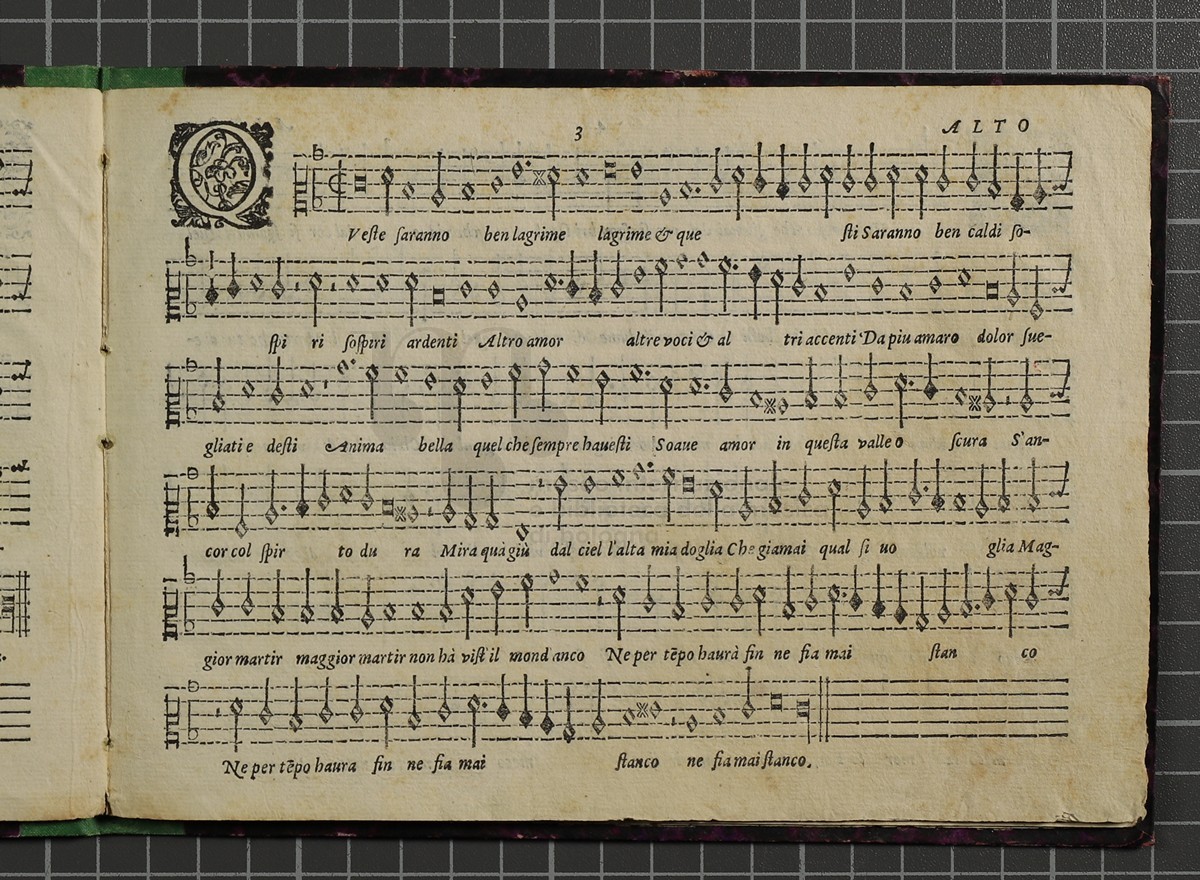 3
ALTO
QVeste saranno ben lagrime lagrime & que sti Saranno ben caldi so-
spi ri sospiri ardenti Altro amor altre voci & al tri accenti Da piu amaro dolor sue-
gliati e desti Anima bella quel che sempre hauesti Soaue amor in questa valle o scura S'an-
cor col spir to du ra Mira qua giù dal ciel l'alta mia doglia Che giamai qual si uo glia Mag-
gior martir maggior martir non hà vist' il mond' anco Ne per tẽpo haurà fin ne fia mai stan co
Ne per tẽpo haura fin ne fia mai stanco ne fia mai stanco.